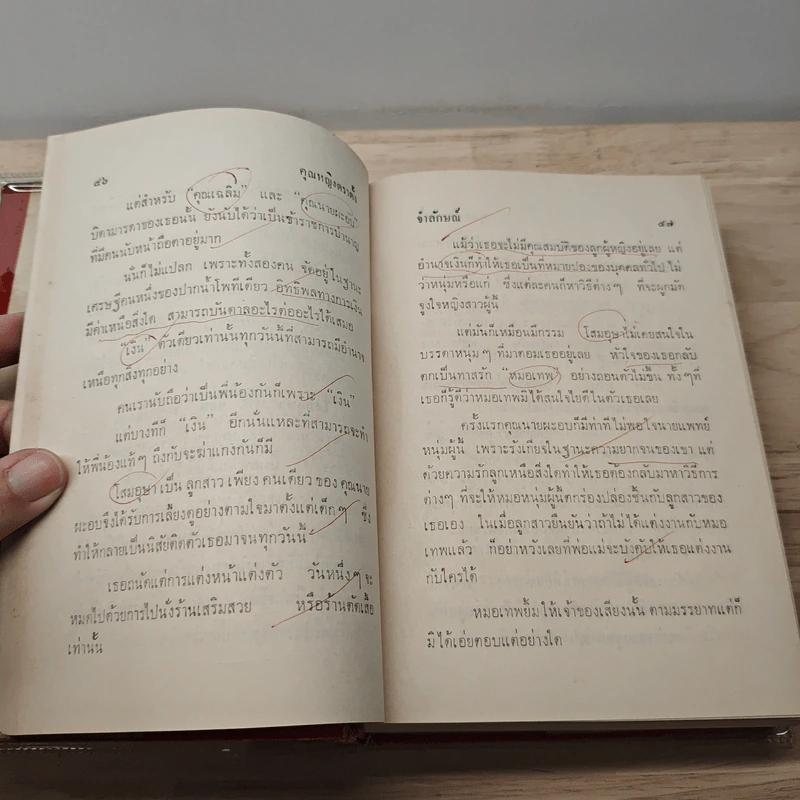 ๕๖
คุณหญิงตราตั้ง
แต่สำหรับ “คุณเฉลิม” และ “คุณนายผะอบ”
บิดามารดาของเธอนั้น ยังนับได้ว่าเป็นข้าราชการบำนาญ
ที่มีคนนับหน้าถือตาอยู่มาก
นั่นก็ไม่แปลก เพราะทั้งสองคน จัดอยู่ในฐานะ
เศรษฐีคนหนึ่งของปากน้ำโพทีเดียว อิทธิพลทางการเงิน
มีค่าเหนือสิ่งใด สามารถบันดาลอะไรต่ออะไรได้เสมอ
“เงิน” ตัวเดียวเท่านั้นทุกวันนี้ที่สามารถมีอำนาจ
เหนือทุกสิ่งทุกอย่าง
คนเรานับถือว่าเป็นพี่น้องกันก็เพราะ “เงิน”
แต่บางทีก็ “เงิน” อีกนั่นแหละที่สามารถจะทำ
ให้พี่น้องแท้ๆ ถึงกับจะฆ่าแกงกันก็มี
โสมอุษา เป็น ลูกสาว เพียง คนเดียว ของ คุณนาย
ผะอบจึงได้รับการเลี้ยงดูอย่างตามใจมาตั้งแต่เด็กๆ ซึ่ง
ทำให้กลายเป็นนิสัยติดตัวเธอมาจนทุกวันนี้
เธอถนัดแต่การแต่งหน้าแต่งตัว วันหนึ่งๆ จะ
หมดไปด้วยการไปนั่งร้านเสริมสวย หรือร้านตัดเสื้อ
เท่านั้น
จำลักษณ์
๕๗
แม้ว่าเธอจะไม่มีคุณสมบัติของลูกผู้หญิงอยู่เลย แต่
อำนาจเงินก็ทำให้เธอเป็นที่หมายปองของบุคคลทั่วไป ไม่
ว่าหนุ่มหรือแก่ ซึ่งแต่ละคนก็หาวิธีต่างๆ ที่จะผูกมัด
จูงใจหญิงสาวผู้นี้
แต่มันก็เหมือนมีกรรม โสมอุษาไม่เคยสนใจใน
บรรดาหนุ่มๆ ที่มาตอมเธออยู่เลย หัวใจของเธอกลับ
ตกเป็นทาสรัก “หมอเทพ” อย่างถอนตัวไม่ขึ้น ทั้งๆที่
เธอก็รู้ดีว่าหมอเทพมิได้สนใจไยดีในตัวเธอเลย
ครั้งแรกคุณนายผะอบก็มีท่าทีไม่พอใจนายแพทย์
หนุ่มผู้นี้ เพราะรังเกียจในฐานะความยากจนของเขา แต่
ด้วยความรักลูกเหนือสิ่งใดทำให้เธอต้องกลับมาหาวิธีการ
ต่างๆ ที่จะให้หมอหนุ่มผู้นี้ตกร่องปล่องชิ้นกับลูกสาวของ
เธอเอง ในเมื่อลูกสาวยืนยันว่าถ้าไม่ได้แต่งงานกับหมอ
เทพแล้ว ก็อย่าหวังเลยที่พ่อแม่จะบังคับให้เธอแต่งงาน
กับใครได้
หมอเทพยิ้มให้เจ้าของเสียงนั้น ตามมรรยาทแต่ก็
มิได้เอ่ยตอบแต่อย่างใด